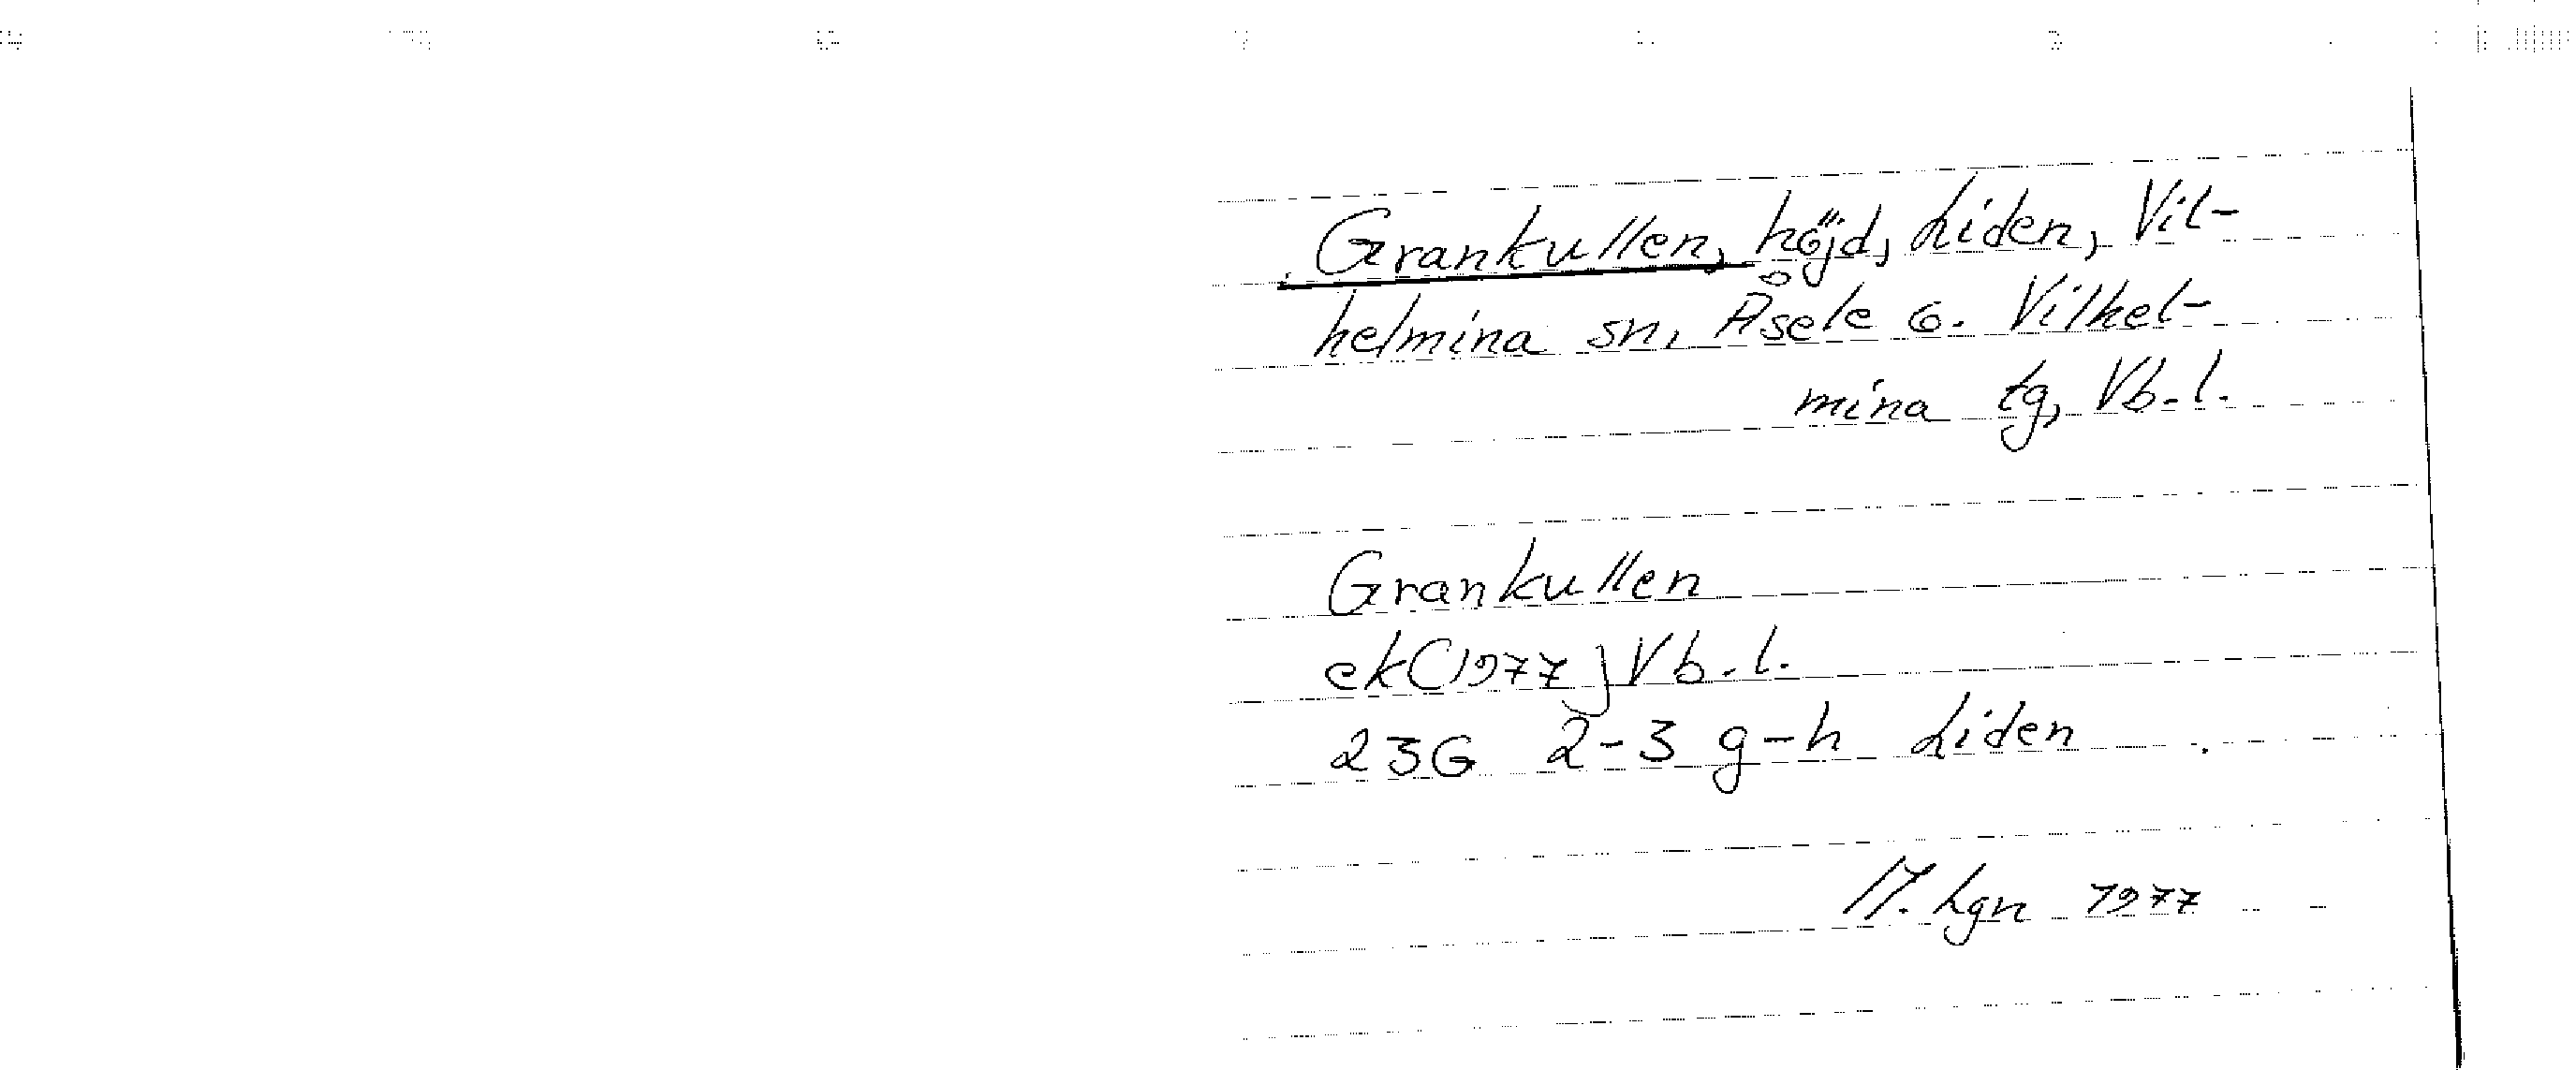 Grankullen, höjd, Liden, Vil-
helmina sn, Åsele o. Vilhel-
mina tg, Vb.l.
Grankullen
ek(1977) Vb.l.
23G 2-3 g-h Liden
M. Lgn 1977